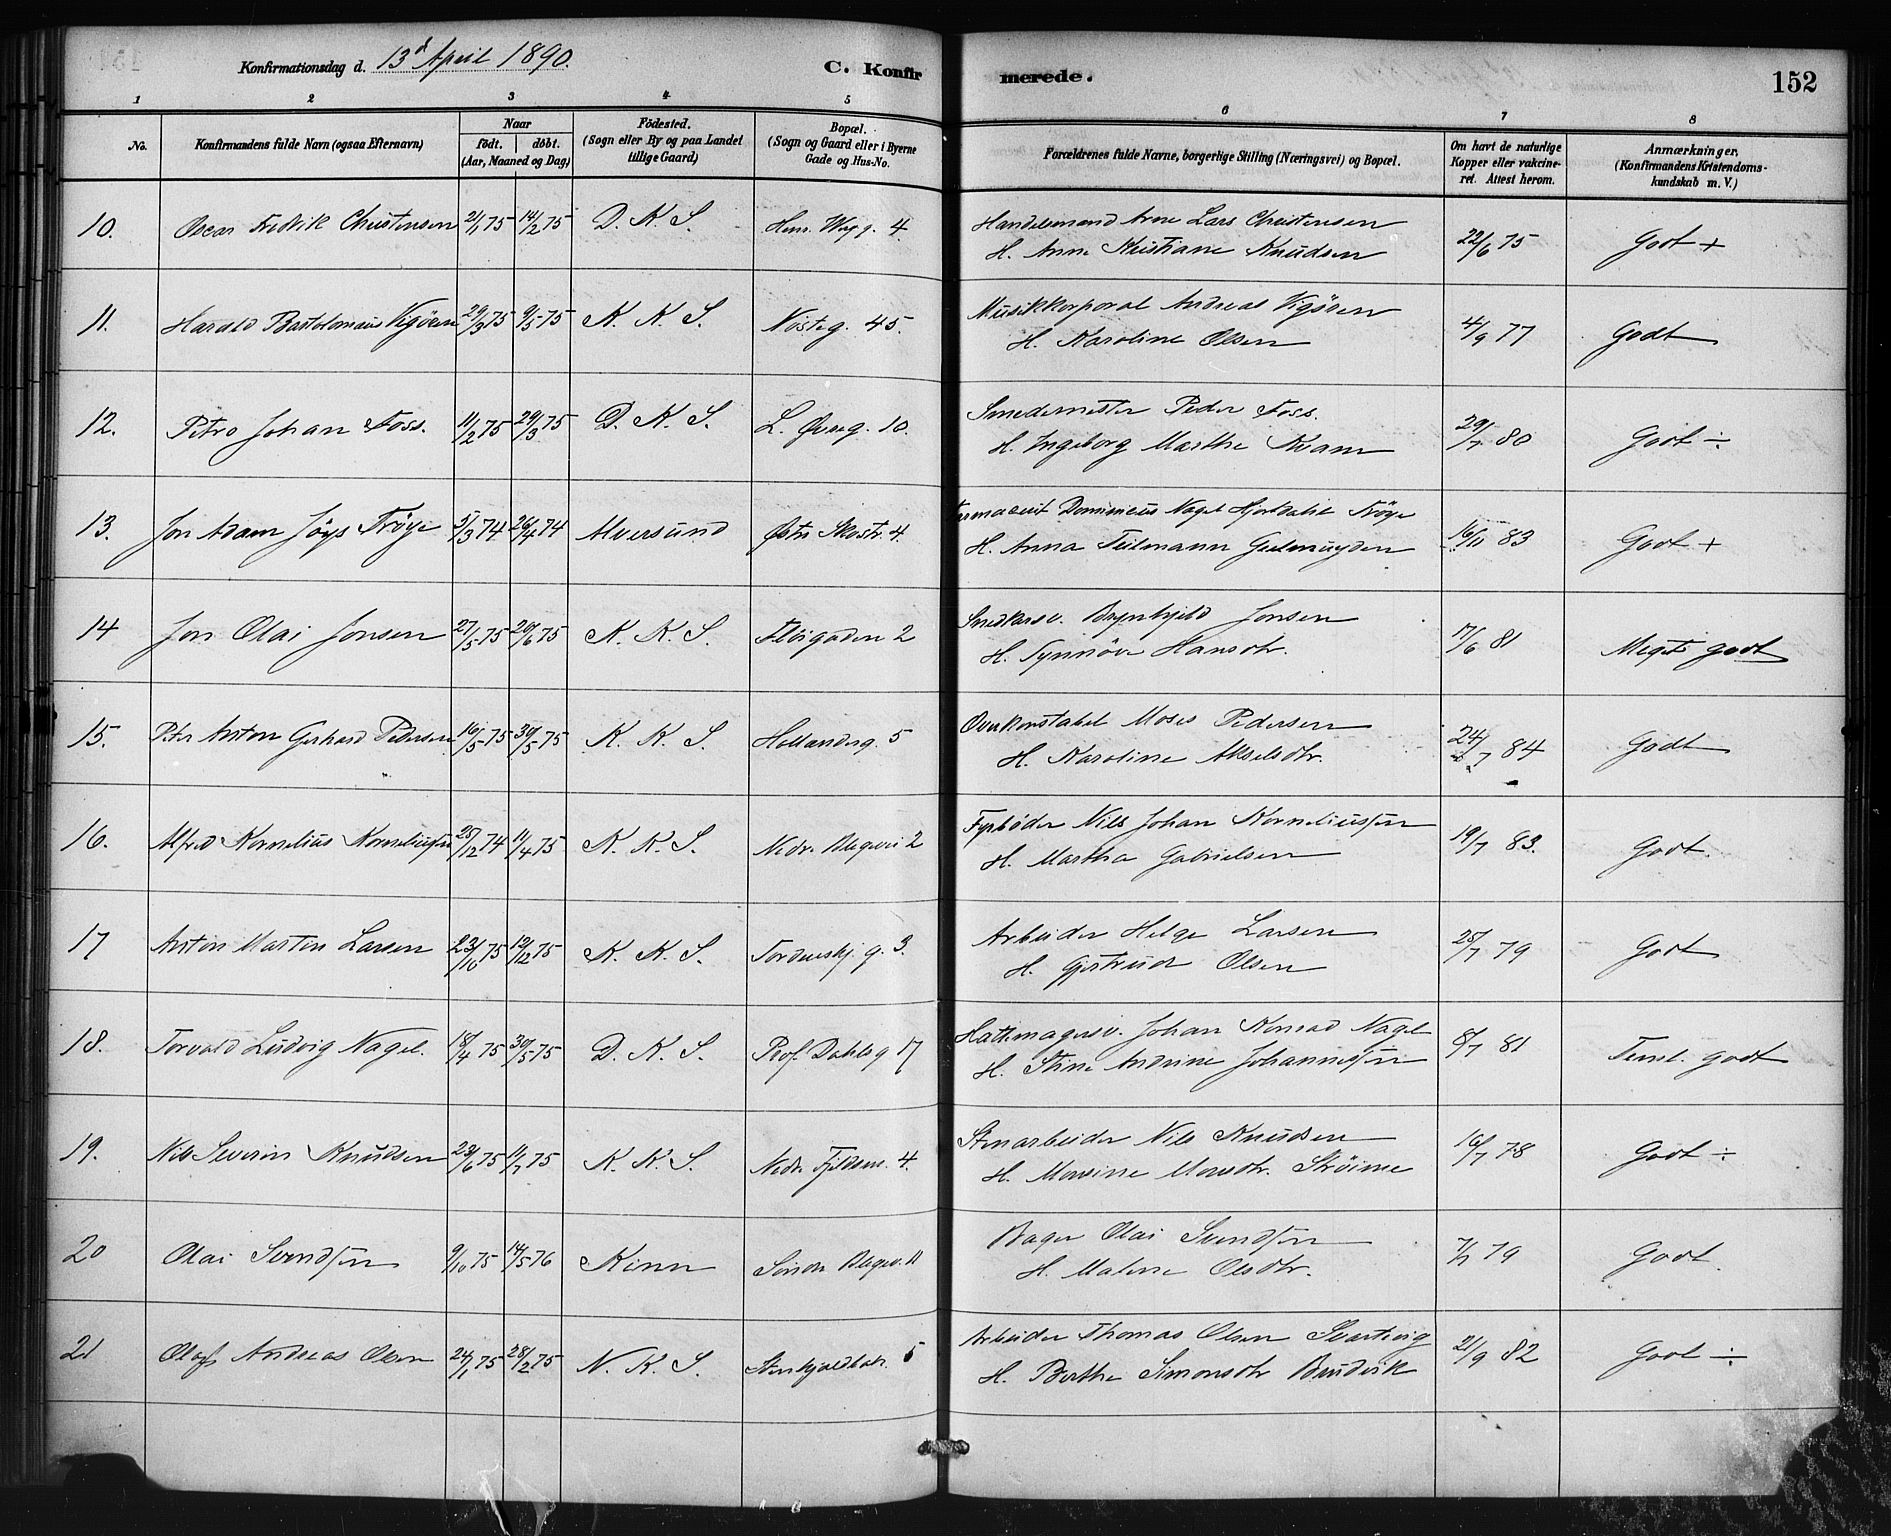 Konfirmationsdag d. 13d April 1890.
C. Konfirmerede.
152
1 2 3 4 5 6 7 8
No. Konfirmandens fulde Navn (ogsaa Efternavn) Naar født. døbt. (Aar, Maaned og Dag) Fødested. (Sogn eller By og paa Landet tillige Gaard) Bopæl. (Sogn og Gaard eller i Byerne Gade og Hus-No. Forældrenes fulde Navne, borgerlige Stilling (Næringsvei) og Bopæl. Om havt de naturlige Kopper eller vakcineret. Attest herom. Anmærkninger. (Konfirmandens Kristendomskundskab m. V.)
10. Oscar Fredrik Christensen 21/1 75 14/2 75 D. K. S. 4. Handelsmand Arne Lars Christensen 22/6 75 Godt +
H. Anne Kristiane Knudsen
11. Harald Bartolomæus Vigören 29/3 75 9/5 75 K. K. S. Nösteg. 45. Musikkorporal Andreas Vigören 4/9 77 Godt
H. Karoline Olsen
12. Petro Johan Foss. 11/2 75 29/3 75 D. K. S. L. Øvreg. 10. Smedemester Peder Foss. 29/7 80 Godt ÷
H. Ingeborg Marthe Kvam
13. Jon Adam Jöys Tröye 5/3 74 26/4 74 Alversund Østre Skostr. 4. Dominicus Nagel Tröye 16/11 83 Godt +
H. Anna Teilmann Geelmuyden
14 Jon Olai Jonsen 27/5 75 20/6 75 K. K. S. Flöigaden 2 Snedkersv. Brynhjeld Jonsen 17/6 81 Meget godt
H. Synnöve Hansdtr.
15. Peter Anton Gerhard Pedersen 16/5 75 30/5 75 K. K. S. Hollænderg. 5 Overkonstabel Moses Pedersen 24/7 84 Godt
H. Karoline Akselsdtr.
16. Alfred Kornelius Korneliussen 25/12 74 11/4 75 K. K. S. Nedre Blegevei 2 Fyrböder Nils Johan Korneliussen 19/7 83. Godt.
H. Martha Gabrielsen
17 Anton Martin Larsen 23/10 75 19/12 75 K. K. S. Tordenskj. g. 3. Arbeider Helge Larsen 25/7 79 Godt
H. Gjertrud Olsen
18. Torvald Ludvig Nagel. 18/4 75 30/5 75 D. K. S. Prof. Dahlsg 17 Hattemagersv. Johan Konrad Nagel 8/7 81 Teml. godt
H. Stine Andrine Johannessen
19. Nils Severin Knudsen 23/6 75 11/7 75 K. K. S. Nedre Fjeldsm. 4. Stenarbeider Nils Knudsen 16/7 78 Godt ÷
H. Monsine Monsdtr. Ströime
20 Olai Svendsen 9/10 75 14/5 76 Kinn Söndre Blegev. 11 Bager Olai Svendsen 7/7 79 Godt.
H. Malene Olsdtr.
21 Olaf Andreas Olsen 24/1 75 28/2 75 N. K. S. 5 Arbeider Thomas Olsen Svartvig 21/9 82 Godt ÷
H. Berthe Simonsdtr Bruvik